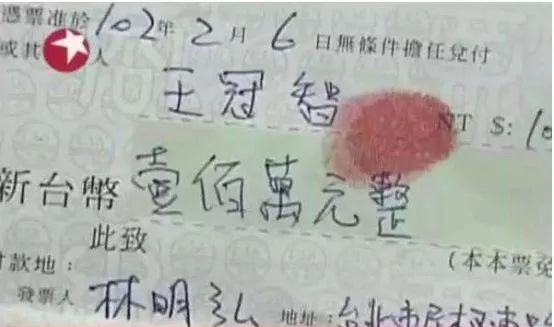 憑票准於102年2月6日無條件擔任兌付
或其 人
王冠智
NT $: 10
新台幣壹佰萬元整
此致
付款地： （本本票免
發票人 林明弘 地址：台北市民权東路